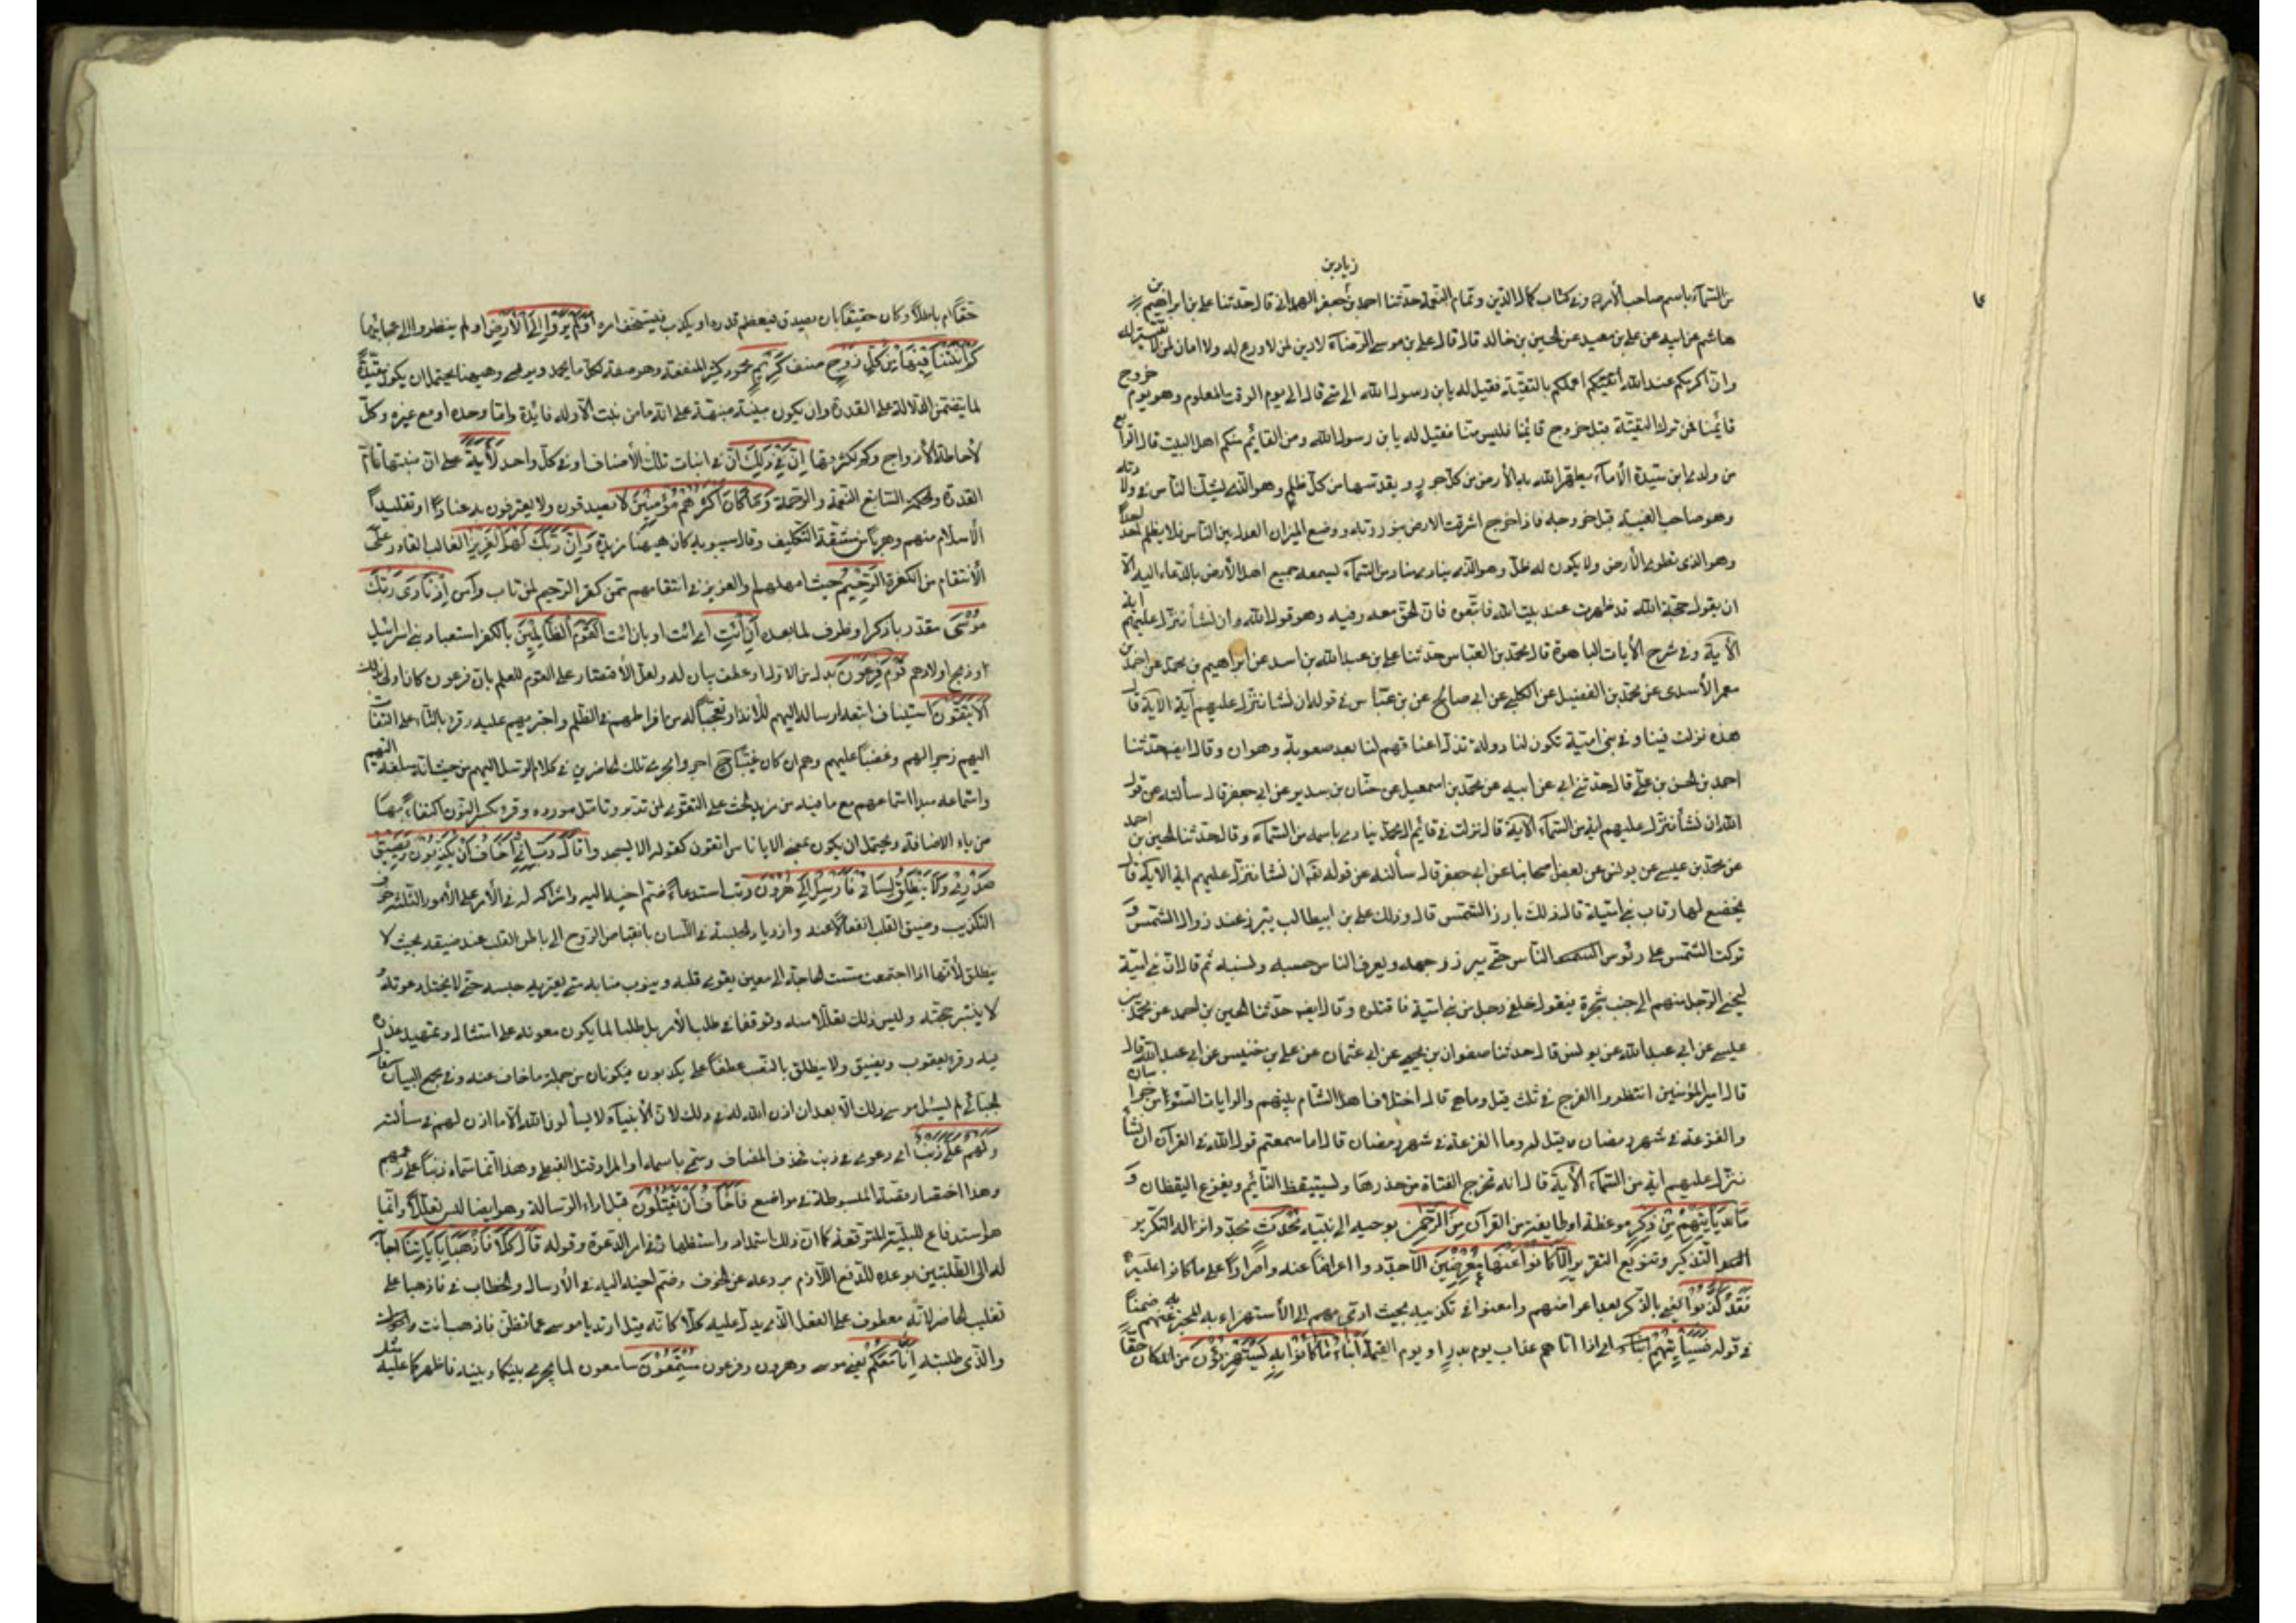 زياد بن
من السماء باسم صاحب الأمر وفي كتاب كمال الدين وتمام النعمة حدثنا احمد بن جعفر الهمداني قال حدثنا علي بن ابراهيم بن
هاشم عن ابيه عن علي بن معبد عن الحسين بن خالد قال قال علي بن موسى الرضا لا دين لمن لا ورع له ولا امان لمن لا تقية له
وان اكرمكم عند الله اتقيكم اعملكم بالتقية فقيل له يابن رسول الله الى متى قال الى يوم الوقت المعلوم وهو يوم خروج
قائمنا فمن ترك التقية قبل خروج قائمنا فليس منا فقيل له يا بن رسول الله ومن القايم منكم اهل البيت قال الرابع
من ولدي ابن سيدة الاماء يطهر الله به الأرض من كل جور ويقدسها من كل ظلم وهو الذي يشك الناس في ولادته
وهو صاحب الغيبة قبل خروجه فاذا خرج اشرقت الارض بنور ربه ووضع الميزان العدل بين الناس فلا يظلم احد احدا
وهو الذي تطوى الأرض ولا يكون له ظل وهو الذي ينادي مناد من السماء يسمعه جميع اهل الأرض بالدعاء اليه الا
ان يقول حجة الله قد ظهرت عند بيت الله فاتبعوه فان الحق معه وفيه وهو قول الله وان نشأ ننزل عليهم اية
الآية وفي شرح الآيات الباهرة قال محمد بن العباس حدثنا علي بن عبد الله بن اسد عن ابراهيم بن محمد عن احمد بن
معمر الأسدي عن محمد بن الفضيل عن الكلبي عن ابي صالح عن بن عباس في قوله ان نشا ننزل عليهم آية الآية قال
هذه نزلت فينا وفي بني امية تكون لنا دولة تذل اعناقهم لنا بعد صعوبة وهوان وقال ايضا حدثنا
احمد بن الحسن بن علي قال حدثني ابي عن ابيه عن محمد بن اسمعيل عن حنان بن سدير عن ابي جعفر قال سألته عن قول
الله ان نشأ ننزل عليهم اية من السماء الآية قال نزلت في قائم ال محمد ينادي باسمه من السماء وقال حدثنا الحسين بن احمد
عن محمد بن عيسى عن يونس عن بعض اصحابنا عن ابي جعفر قال سألته عن قوله تعالى ان نشا ننزل عليهم اية الآية قال
يخضع لها رقاب بني امية قال ذلك بارز الشمس قال وذلك علي بن ابيطالب يبرز عند زوال الشمس و
تركت الشمس على رؤس الناس حتى يبرز وجهه ويعرف الناس حسبه ونسبه ثم قال ان بني امية
ليختبي الرجل منهم الى جنب شجرة فيقول خلفي رجل من بني امية فاقتلوه وقال ايضا حدثنا الحسين بن احمد عن محمد بن
عيسى عن ابي عبد الله عن يونس قال حدثنا صفوان بن يحيى عن ابي عثمان عن علي بن خنيس عن ابي عبد الله قال
قال امير المؤمنين انتظروا الفرج في ثلث قيل وما هي قال اختلاف اهل الشام بينهم والرايات السود من خراسان
والفزعة في شهر رمضان فقيل له وما الفزعة في شهر رمضان قال اما سمعتم قول الله في القرآن ان نشأ
ننزل عليهم اية من السماء الآية قال انه تخرج الفتاة من خدرها ويستيقظ النائم ويفزع اليقظان و
ما يأتيهم من ذكر موعظة او طايفة من القرآن من الرحمن بوحيه الى نبيه محدث مجدد انزاله لتكرير
التذكير وتنويع التقرير الا كانوا عنها معرضين الا جددوا اعراضا عنه واصرارا على ما كانوا عليه
فقد كذبوا يعني بالذكر بعد اعراضهم وامعنوا في تكذيبه بحيث ادى بهم الى الأستهزاء به المخبر به عنهم ضمنا
في قوله فسيأتيهم انباء اي اذا اتاهم عذاب يوم بدر او يوم القيمة أنباء ما كانوا به يستهزؤن من انه كان حقا
حقا ام باطلا وكان حقيقا بان يصدق فيعظم قدره او يكذب فيستخف امره أولم يروا إلى الأرض او لم ينظروا الى عجائبها
كم أنبتنا فيها من كل زوج صنف كريم محمود كثير المنفعة وهو صفة لكل ما يحمد ويرضى وههنا يحتمل ان يكون مقيدة
لما يتضمن الدلالة على القدرة وان يكون مبينة منبهة على انه ما من نبت الا وله فائدة واما وحده او مع غيره وكل
لأحاطة الأزواج وكم لكثرتها إن في ذلك ان في انبات تلك الأصناف او في كل واحد لآية على ان منبتها تام
القدرة والحكمة السابغ النعمة والرحمة وما كان أكثرهم مؤمنين لا يصدقون ولا يعترفون به عنادا او تقليدا
الأسلام منهم وهربا من مشقة التكليف وقال سيبويه كان ههنا مزيدة وإن ربك لهو العزيز الغالب القادر على
الأنتقام من الكفرة الرحيم حيث امهلهم او العزيز في انتقامهم ممن كفر الرحيم لمن تاب وآمن إذ نادى ربك
موسى مقدر باذكر او ظرف لما بعده أن أئت اي ائت او بان ائت القوم الظالمين بالكفر استعباد بني اسرائيل
وذبح اولادهم قوم فرعون بدل من الاول او عطف بيان له ولعل الأقتصار على القوم للعلم بان فرعون كان اولى بذلك
ألا يتقون استيناف اتبعه ارساله اليهم للأنذار تعجيبا له من افراطهم في الظلم واجترائهم عليه وقرء بالتاء على التفات
اليهم زجرا لهم وغضبا عليهم وهم ان كان غيبا اجروا مجرى تلك الحاضرين في كلام الرسل اليهم من حيث انه مبلغه اليهم
واستماعه مبدا استماعهم مع ما فيه من مزيد الحث على التقوى لمن تدبر وتأمل مورده وقرء بكسر النون اكتفاء بها
من ياء الأضافة ويحتمل ان يكون بمعنى الا يا ناس اتقون كقوله الا يسجدوا قال رب إني أخاف أن يكذبون ويضيق
صدري ولا ينطلق لساني فأرسل إلى هرون رتب استدعاء ضم اخيه اليه واشراكه له في الأمر على الأمور الثلثة خوف
التكذيب وضيق القلب انفعالا عنه وازدياد الحبسة في اللسان بانقباض الروح الى باطن القلب عند ضيقه بحيث لا
ينطلق لأنها اذا اجتمعت مست الحاجة الى معين يقوي قلبه وينوب منابه متى يعتريه حبسة حتى لا يختل دعوته و
لا ينبتر حجته وليس ذلك تعللا منه وتوقفا في طلب الأمر بل طلبا لما يكون معونة على امتثاله وتمهيد عذره
فيه وقرء يعقوب ويضيق ولا ينطلق بالنصب عطفا على يكذبون فيكونان من جملة ما خاف عنه وفي مجمع البيان قال
الجبائي لم يسئل موسى ذلك الا بعد ان اذن الله له في ذلك لان الأنبياء لا يسألون الله الا ما اذن لهم في مسألته
ولهم علي ذنب اي دعوى في ذنب فحذف المضاف وسمي باسمه او المراد قتل القبطي وهذا انما سماه ذنبا على زعمهم
وهذا اختصار قصته المبسوطة في مواضع فأخاف أن يقتلون قبل اداء الرسالة وهو ايضا ليس تعللا وانما
هو استدفاع للبلية المتوقعة كما ان ذلك استمداد واستظهار في امر الدعوة وقوله قال كلا فاذهبا بآياتنا اجابة
له الى الطلبتين بوعده للدفع اللازم بردعه عن الخوف وضم اخيه اليه في الأرسال والخطاب في فاذهبا على
تغليب الحاضر لأنه معطوف على الفعل الذي يدل عليه كلا كانه قيل ارتدع يا موسى عما تظن فاذهب انت
والذي طلبته إنا معكم يعني موسى وهرون وفرعون مستمعون سامعون لما يجري بينكما وبينه فاظهركما عليه